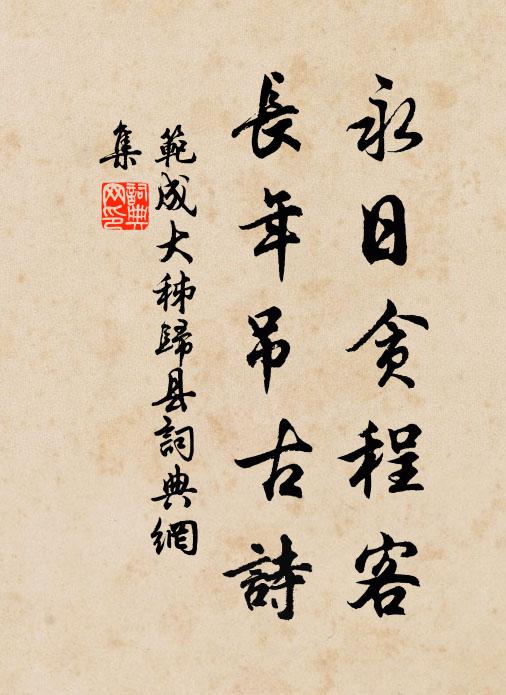 永日贪程客
長年吊古詩
範成大秭歸县詞典網
集
詞典網印